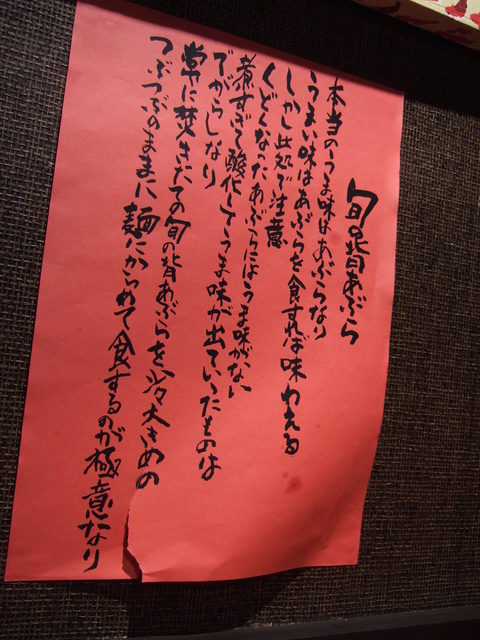 旬の背あぶら
本当のうま味はあぶらなり
うまい味はあぶらを食すれば味わえる
しかし此処で注意
くどくなったあぶらにはうま味がない
煮すぎて酸化してうま味が出ていったものは
でがらしなり
常に焚きたての旬の背あぶらを少々大きめの
つぶつぶのままに麺にからめて食するのが極意なり